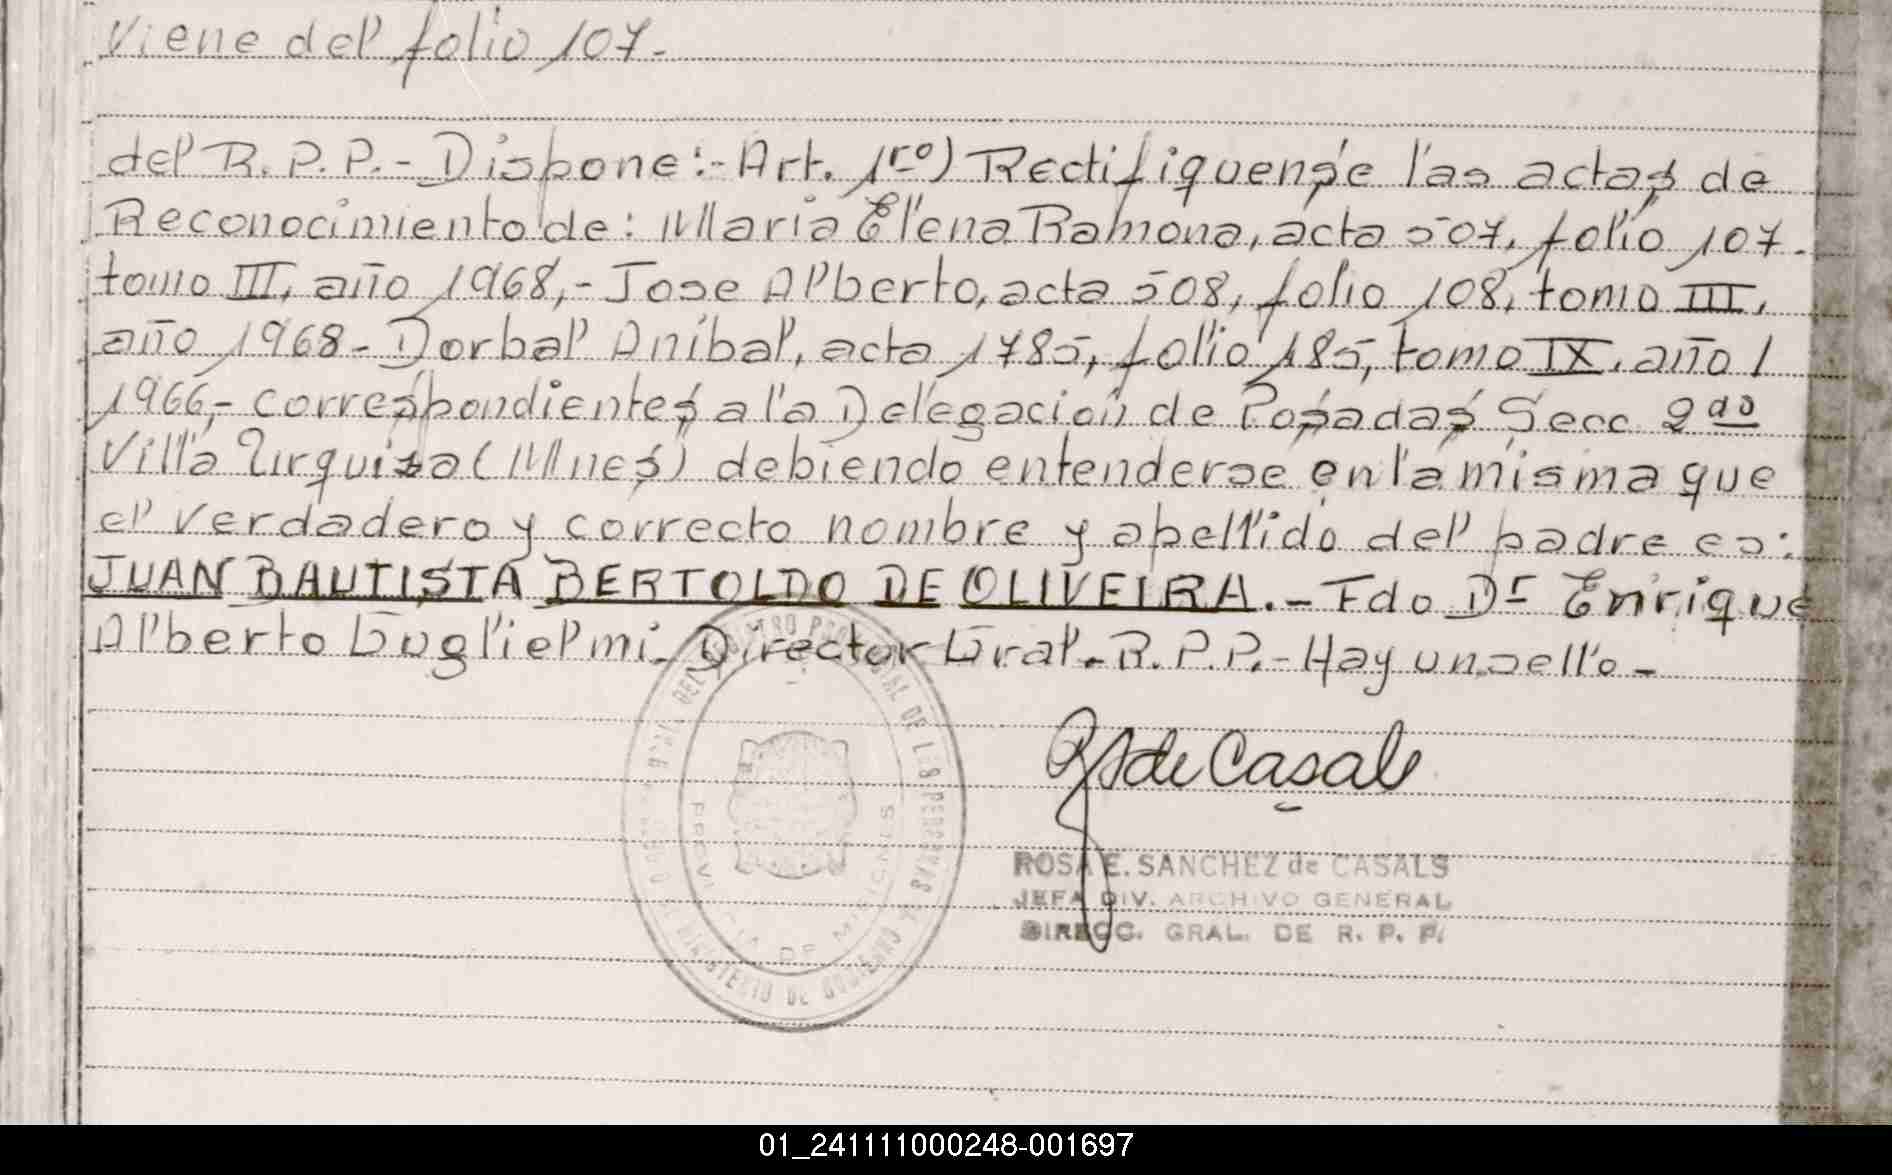 Viene del folio 107.-
del R.P.P.- Dispone:- Art. 1ro) Rectifiquense las actas de
Reconocimiento de: Maria Elena Ramona, acta 507, folio 107.
tomo III, año 1968,- Jose Alberto, acta 508, folio 108, tomo III,
año 1968- Dorbal Anibal, acta 1785, folio 185, tomo IX, año /
1966,- correspondientes a la Delegación de Posadas Secc. 2da
Villa Urquiza (Mnes) debiendo entenderse en la misma que
el verdadero y correcto nombre y apellido del padre es:
JUAN BAUTISTA BERTOLDO DE OLIVEIRA.- Fdo Dr Enrique
Alberto Guglielmi. Director Gral. R.P.P.- Hay un sello-
REGISTRO PROVINCIAL DE LAS PERSONAS
MINISTERIO DE GOBIERNO
PROVINCIA DE MISIONES
de Casals
ROSA E. SANCHEZ de CASALS
JEFA DIV. ARCHIVO GENERAL
DIRECC. GRAL. DE R. P. P.
01_241111000248-001697